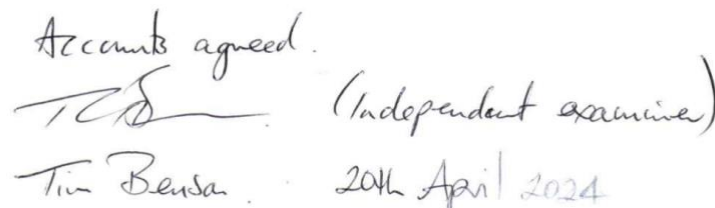 Accounts agreed.
(Independent examiner)
Tim Benson. 20th April 2024